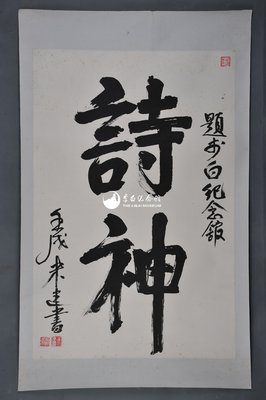 題李白纪念馆
詩神
壬戌朱建書
李白纪念馆
THE LIBAI MUSEUM